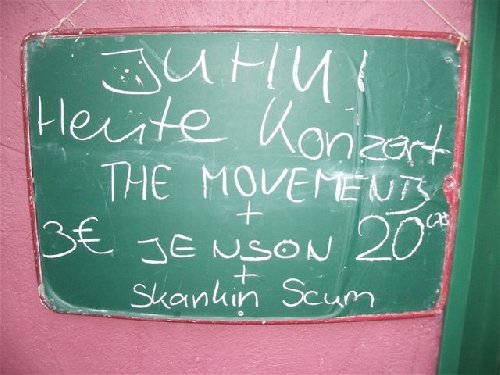 JUHU!
Heute Konzert
THE MOVEMENTS
+
3€ JENSON 20⁰⁰
+
Skankin Scum